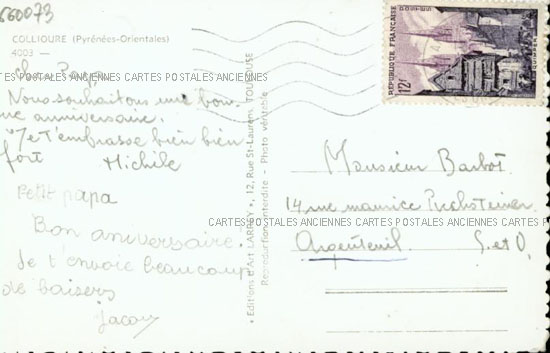 660073
COLLIOURE (Pyrénées-Orientales)
4003 —
Cher Papa
CARTES POSTALES ANCIENNES CARTES POSTALES ANCIENNES CARTES POSTALES ANCIENNES
Nous souhaitons une bon-
ne anniversaire.
Je t'embrasse bien bien
fort Michèle
Petit papa
Bon aniversaire.
Je t'envoie beaucoup
de baisers
Jacou
• Editions d'Art LARREY •, 12, Rue St-Laurent, TOULOUSE
Reproduction interdite - Photo véritable
REPUBLIQUE FRANÇAISE
POSTES
12F
Monsieur Barbot.
14 rue maurice
CARTES POSTALES ANCIENNES CARTES POSTALES ANCIENNES CARTES POSTALES ANCIENNES
Argenteuil S. et O.